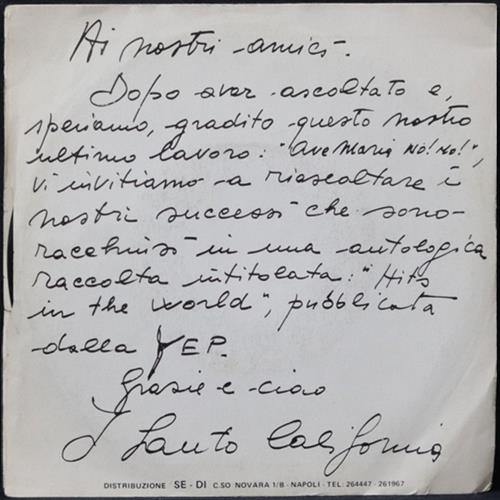 Ai nostri amici.
Dopo aver ascoltato e,
speriamo, gradito questo nostro
ultimo lavoro: "Ave Maria NO! NO!",
vi invitiamo a riascoltare i
nostri successi che sono
racchiusi in una antologica
raccolta intitolata: "Hits
in the world", pubblicata
dalla YEP.
Grazie e ciao
I Santo California
DISTRIBUZIONE SE-DI C.SO NOVARA 1/B - NAPOLI - TEL: 264447 - 261967